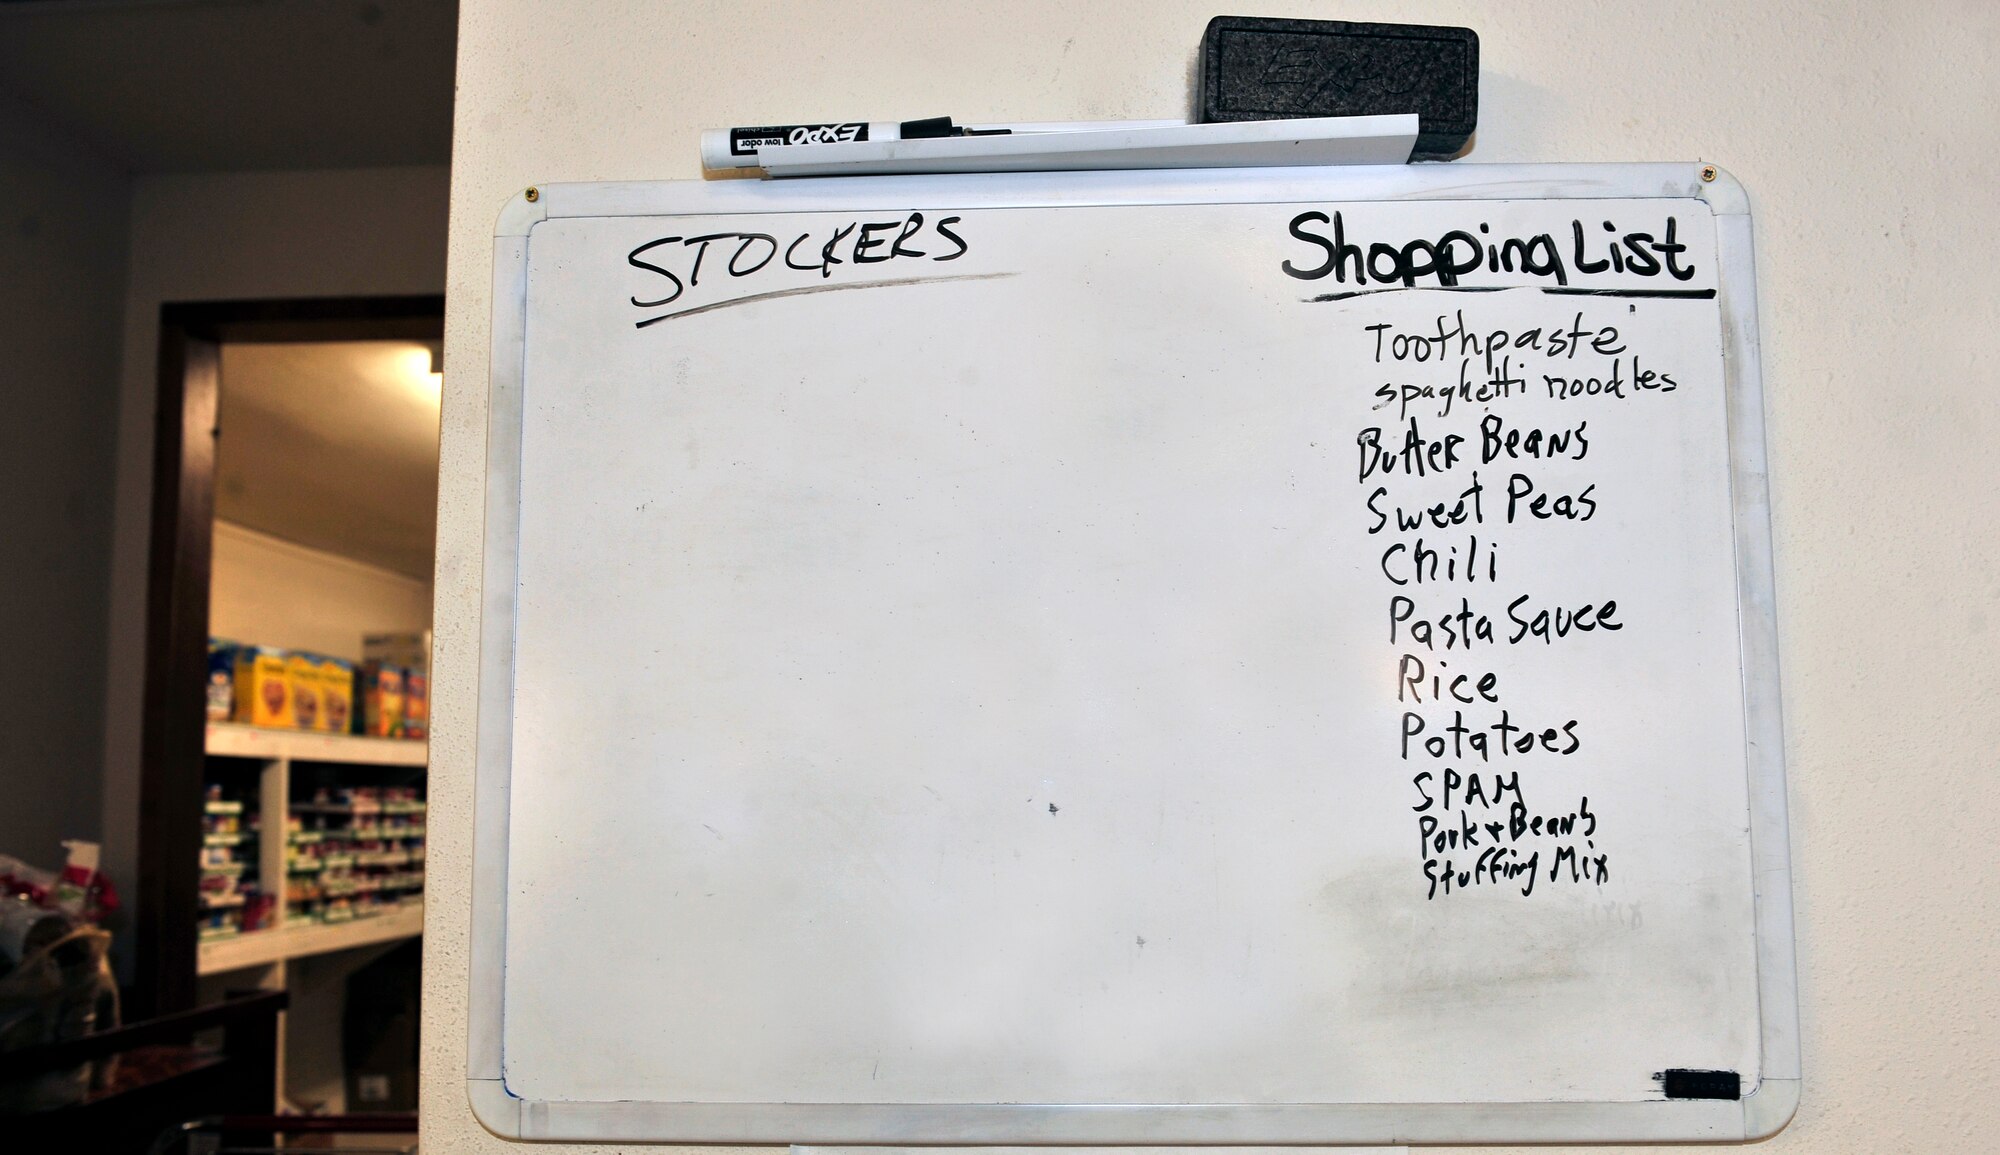 EXPO
low odor
Expo
STOCKERS
Shopping List
Toothpaste
spaghetti noodles
Butter Beans
Sweet Peas
Chili
Pasta Sauce
Rice
Potatoes
SPAM
Pork + Beans
Stuffing Mix